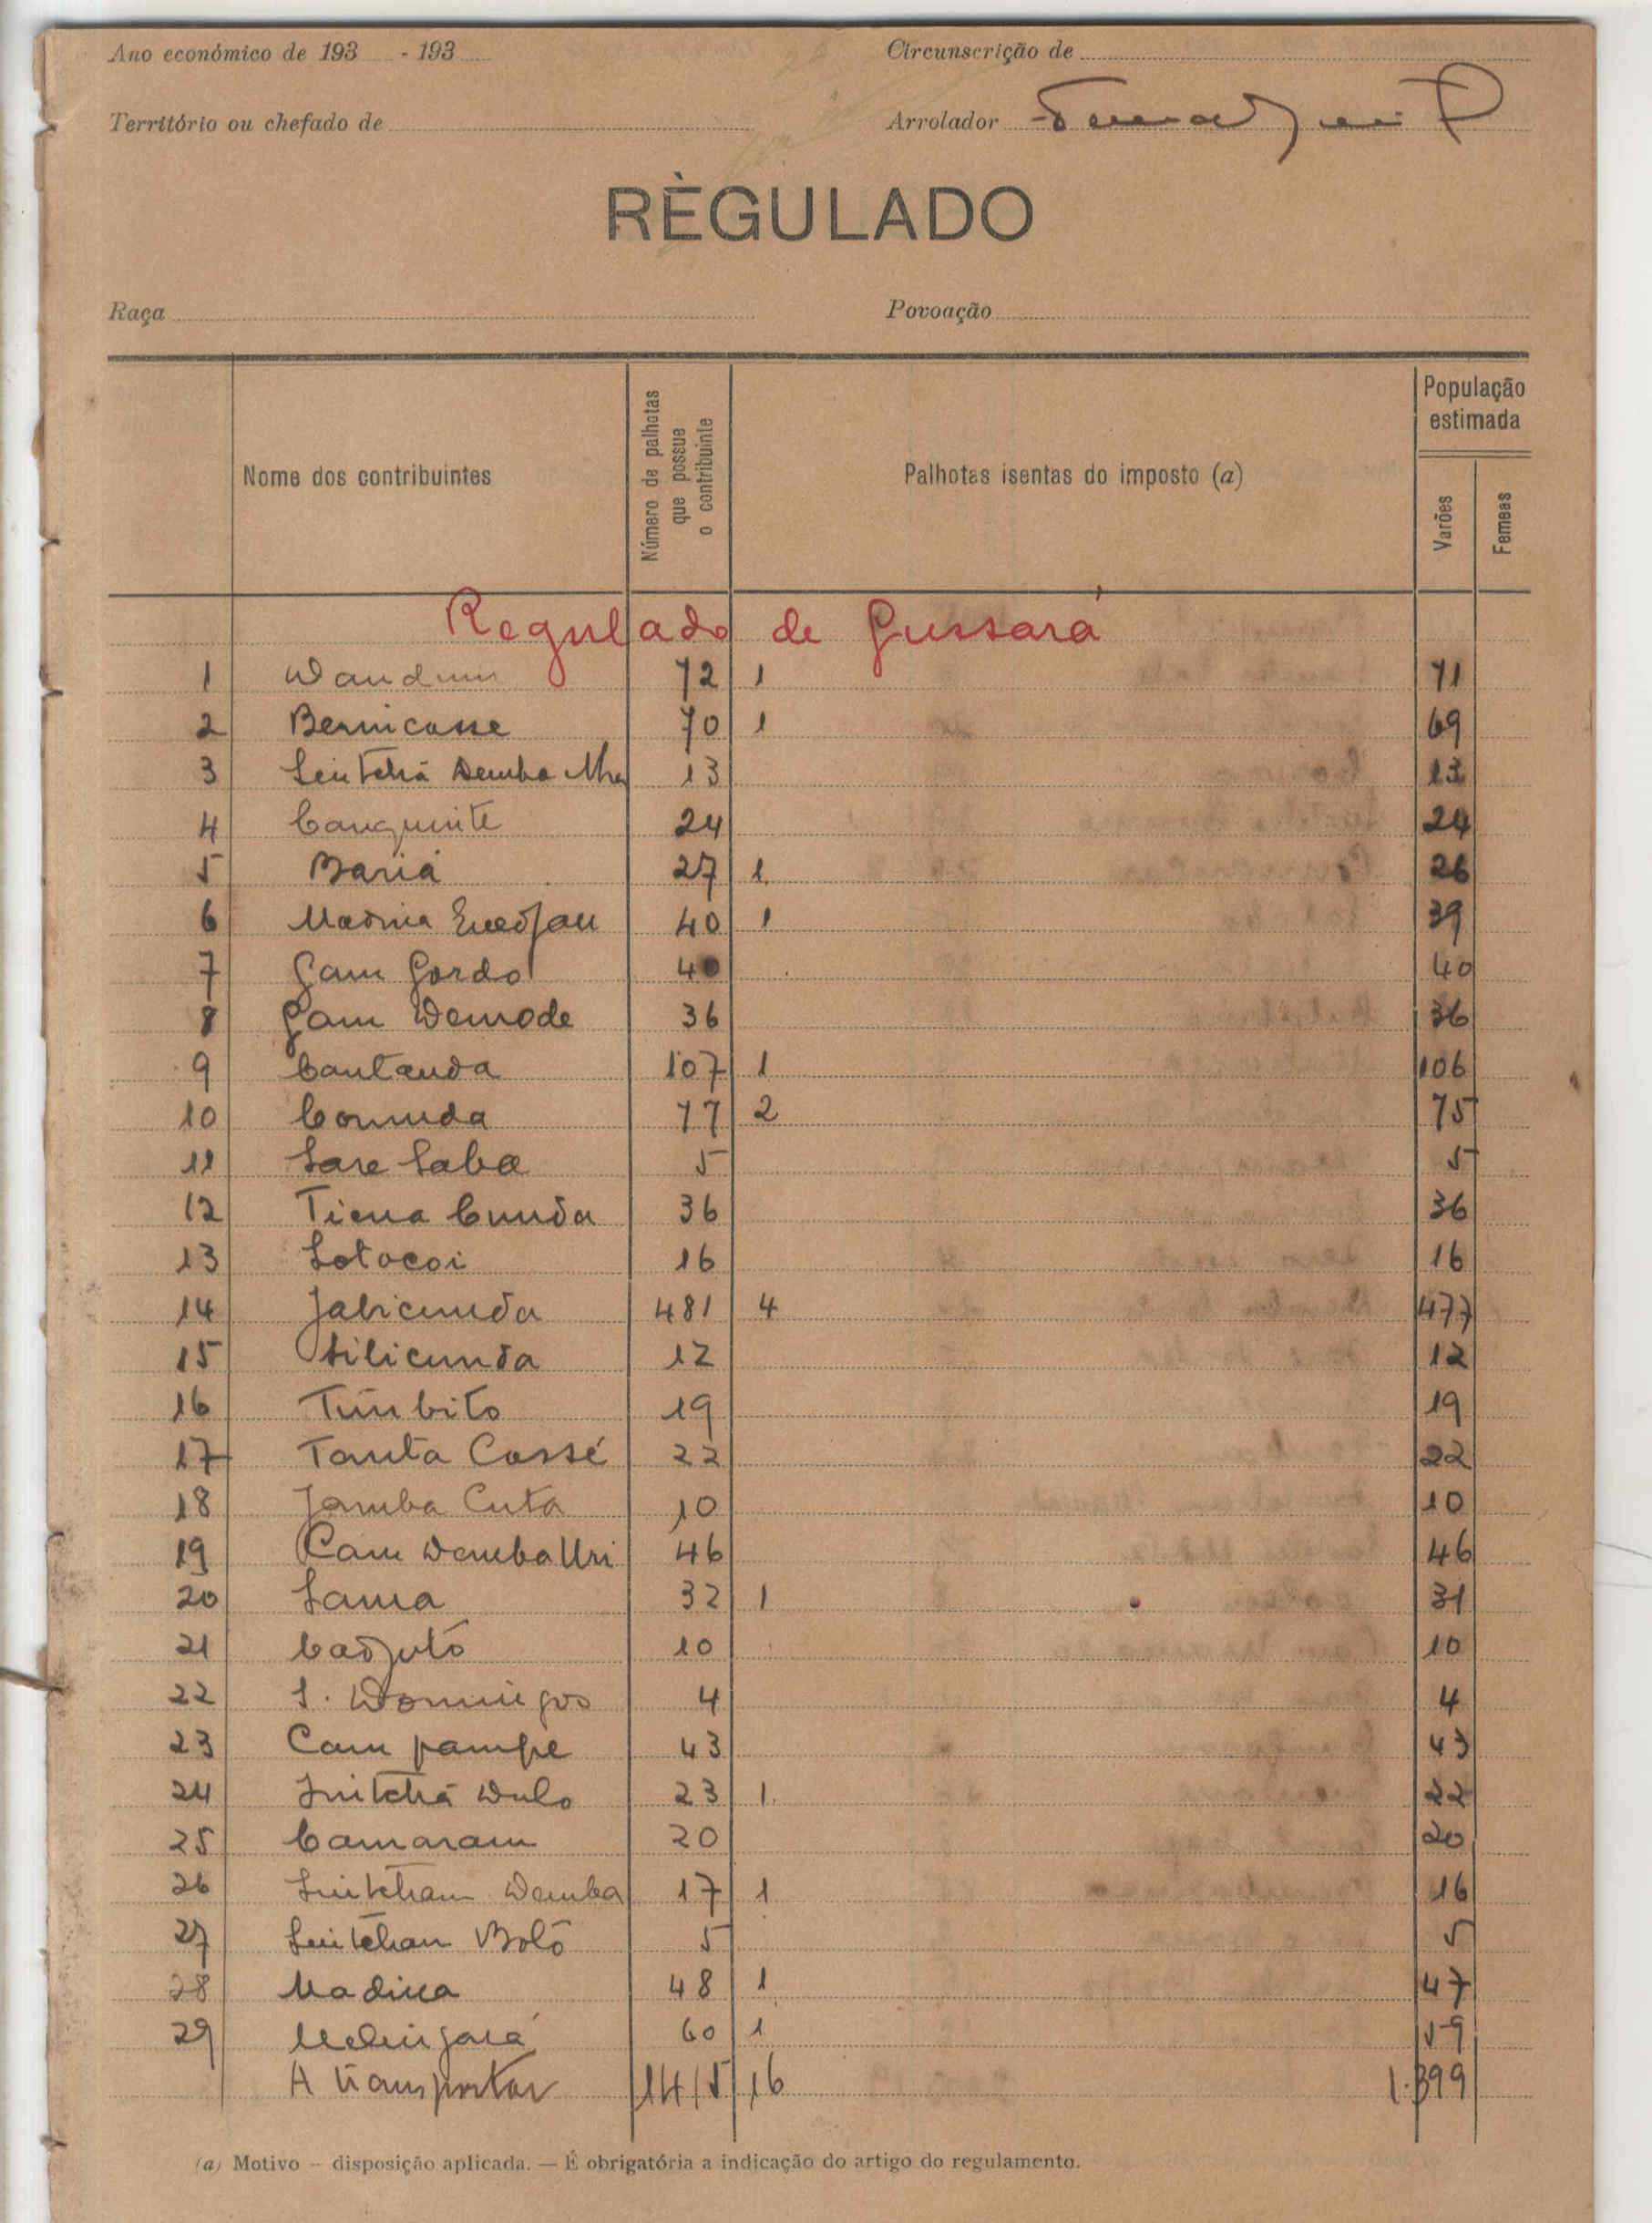 Ano económico de 193 - 193
Circunscrição de
Território ou chefado de
Arrolador
RÈGULADO
Raça
Povoação
Nome dos contribuintes
Número de palhotas que possue o contribuinte
Palhotas isentas do imposto (a)
População estimada
Varões
Femeas
Regulado de Gussará
1 72 1 71
2 Bernicasse 70 1 69
3 Demba 13 13
4 Canquinte 24 24
5 Bariá 27 1 26
6 Madina 40 1 39
7 Gam Gordo 40 40
8 Gam Demode 36 36
9 Cantauda 107 1 106
10 Comuda 77 2 75
11 Sare 5 5
12 Tiena Cunda 36 36
13 Sotocoi 16 16
14 Jabicunda 481 4 477
15 Silicunda 12 12
16 Tumbito 19 19
17 Tanta Cossé 22 22
18 Jamba Cuta 10 10
19 Cam Demba Uri 46 46
20 Sama 32 1 31
21 Cadjutó 10 10
22 S. Domingos 4 4
23 Cam pampe 43 43
24 23 1 22
25 Camaram 20 20
26 Sintcham Demba 17 1 16
27 Sintcham Boló 5 5
28 Madina 48 1 47
29 60 1 59
A transportar 1415 16 1.399
(a) Motivo — disposição aplicada. — É obrigatória a indicação do artigo do regulamento.